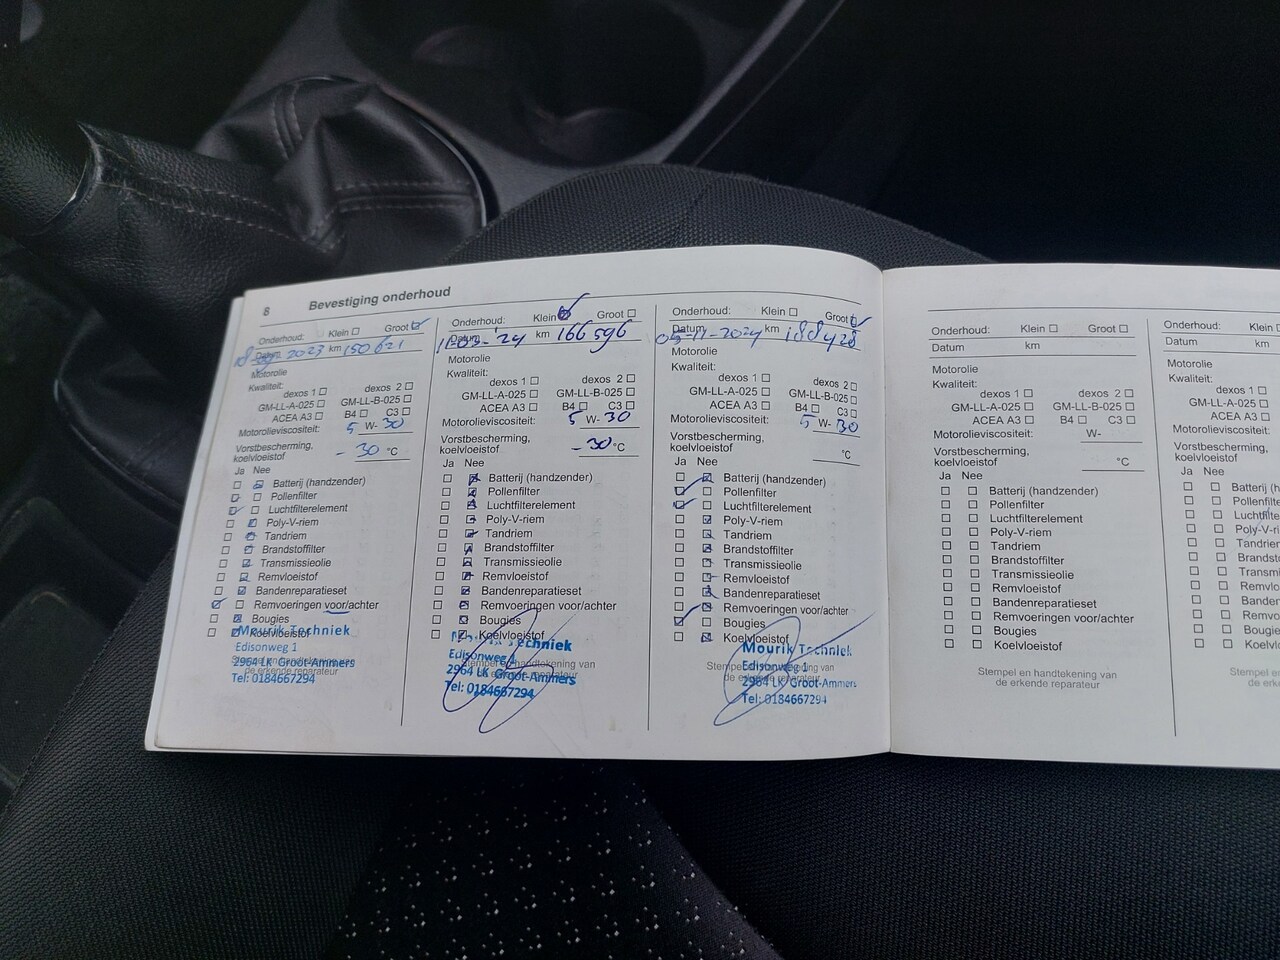 8 Bevestiging onderhoud
Onderhoud: Klein Groot
Datum 2023 km 150621
Motorolie
Kwaliteit:
dexos 1 dexos 2
GM-LL-A-025 GM-LL-B-025
ACEA A3 B4 C3
Motorolieviscositeit: 5 W- 30
Vorstbescherming,
koelvloeistof - 30 °C
Ja Nee
Batterij (handzender)
Pollenfilter
Luchtfilterelement
Poly-V-riem
Tandriem
Brandstoffilter
Transmissieolie
Remvloeistof
Bandenreparatieset
Remvoeringen voor/achter
Bougies
Koelvloeistof
Mourik Techniek
Edisonweg 1
2964 LK Groot-Ammers
Tel: 0184667294
Stempel en handtekening van
de erkende reparateur
Onderhoud: Klein Groot
Datum '24 km 166596
Motorolie
Kwaliteit:
dexos 1 dexos 2
GM-LL-A-025 GM-LL-B-025
ACEA A3 B4 C3
Motorolieviscositeit: 5 W- 30
Vorstbescherming,
koelvloeistof - 30 °C
Ja Nee
Batterij (handzender)
Pollenfilter
Luchtfilterelement
Poly-V-riem
Tandriem
Brandstoffilter
Transmissieolie
Remvloeistof
Bandenreparatieset
Remvoeringen voor/achter
Bougies
Koelvloeistof
Techniek
Edisonweg 1
2964 LK Groot-Ammers
Tel: 0184667294
Stempel en handtekening van
de erkende reparateur
Onderhoud: Klein Groot
Datum 05-11-2024 km 188428
Motorolie
Kwaliteit:
dexos 1 dexos 2
GM-LL-A-025 GM-LL-B-025
ACEA A3 B4 C3
Motorolieviscositeit: 5 W- 30
Vorstbescherming,
koelvloeistof °C
Ja Nee
Batterij (handzender)
Pollenfilter
Luchtfilterelement
Poly-V-riem
Tandriem
Brandstoffilter
Transmissieolie
Remvloeistof
Bandenreparatieset
Remvoeringen voor/achter
Bougies
Koelvloeistof
Mourik Techniek
Edisonweg 1
2964 LK Groot-Ammers
Tel: 0184667294
Stempel en handtekening van
de erkende reparateur
Onderhoud: Klein Groot
Datum km
Motorolie
Kwaliteit:
dexos 1 dexos 2
GM-LL-A-025 GM-LL-B-025
ACEA A3 B4 C3
Motorolieviscositeit: W-
Vorstbescherming,
koelvloeistof °C
Ja Nee
Batterij (handzender)
Pollenfilter
Luchtfilterelement
Poly-V-riem
Tandriem
Brandstoffilter
Transmissieolie
Remvloeistof
Bandenreparatieset
Remvoeringen voor/achter
Bougies
Koelvloeistof
Stempel en handtekening van
de erkende reparateur
Onderhoud: Klein
Datum km
Motorolie
Kwaliteit:
dexos 1
GM-LL-A-025
ACEA A3
Motorolieviscositeit:
Vorstbescherming,
koelvloeistof
Ja Nee
Batterij (h
Pollenfilte
Luchtfilte
Poly-V-ri
Tandrien
Brandsto
Transmi
Remvloe
Banden
Remvo
Bougie
Koelvlo
Stempel e
de erke